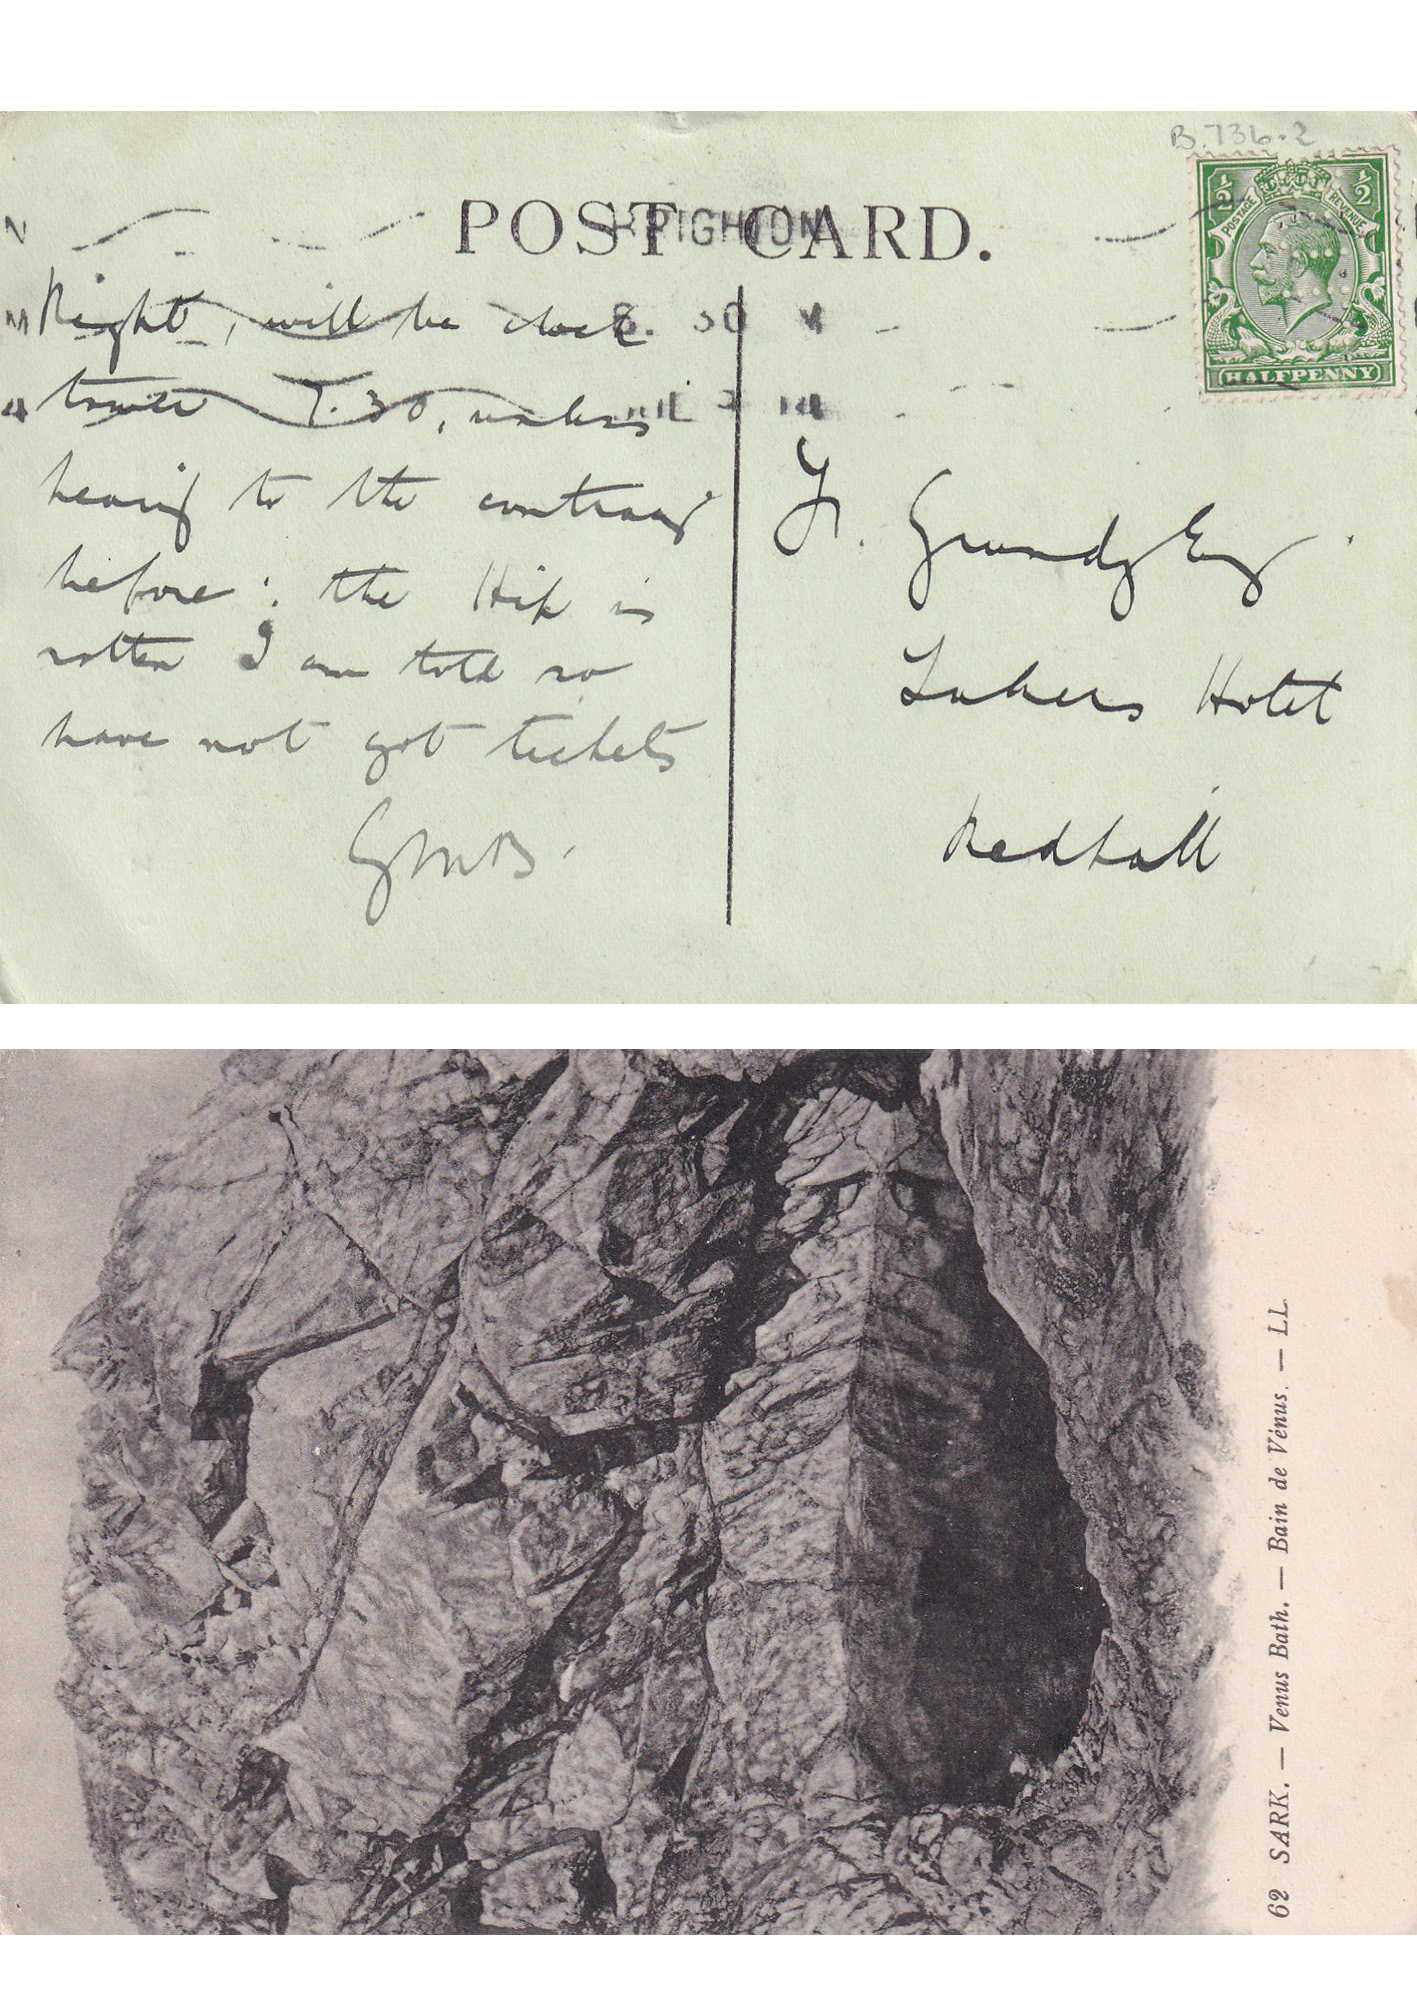 B.736.2
POST CARD.
BRIGHTON
8. 30
JUL 14
½ ½
POSTAGE REVENUE
HALFPENNY
Right, will be clock
tower 7.30, unless
hearing to the contrary
before: the Hip is
rotten I am told so
have not got tickets
GMB.
Grundy Esq.
Lakers Hotel
Redhill
62 SARK. — Venus Bath. — Bain de Vénus. — LL.